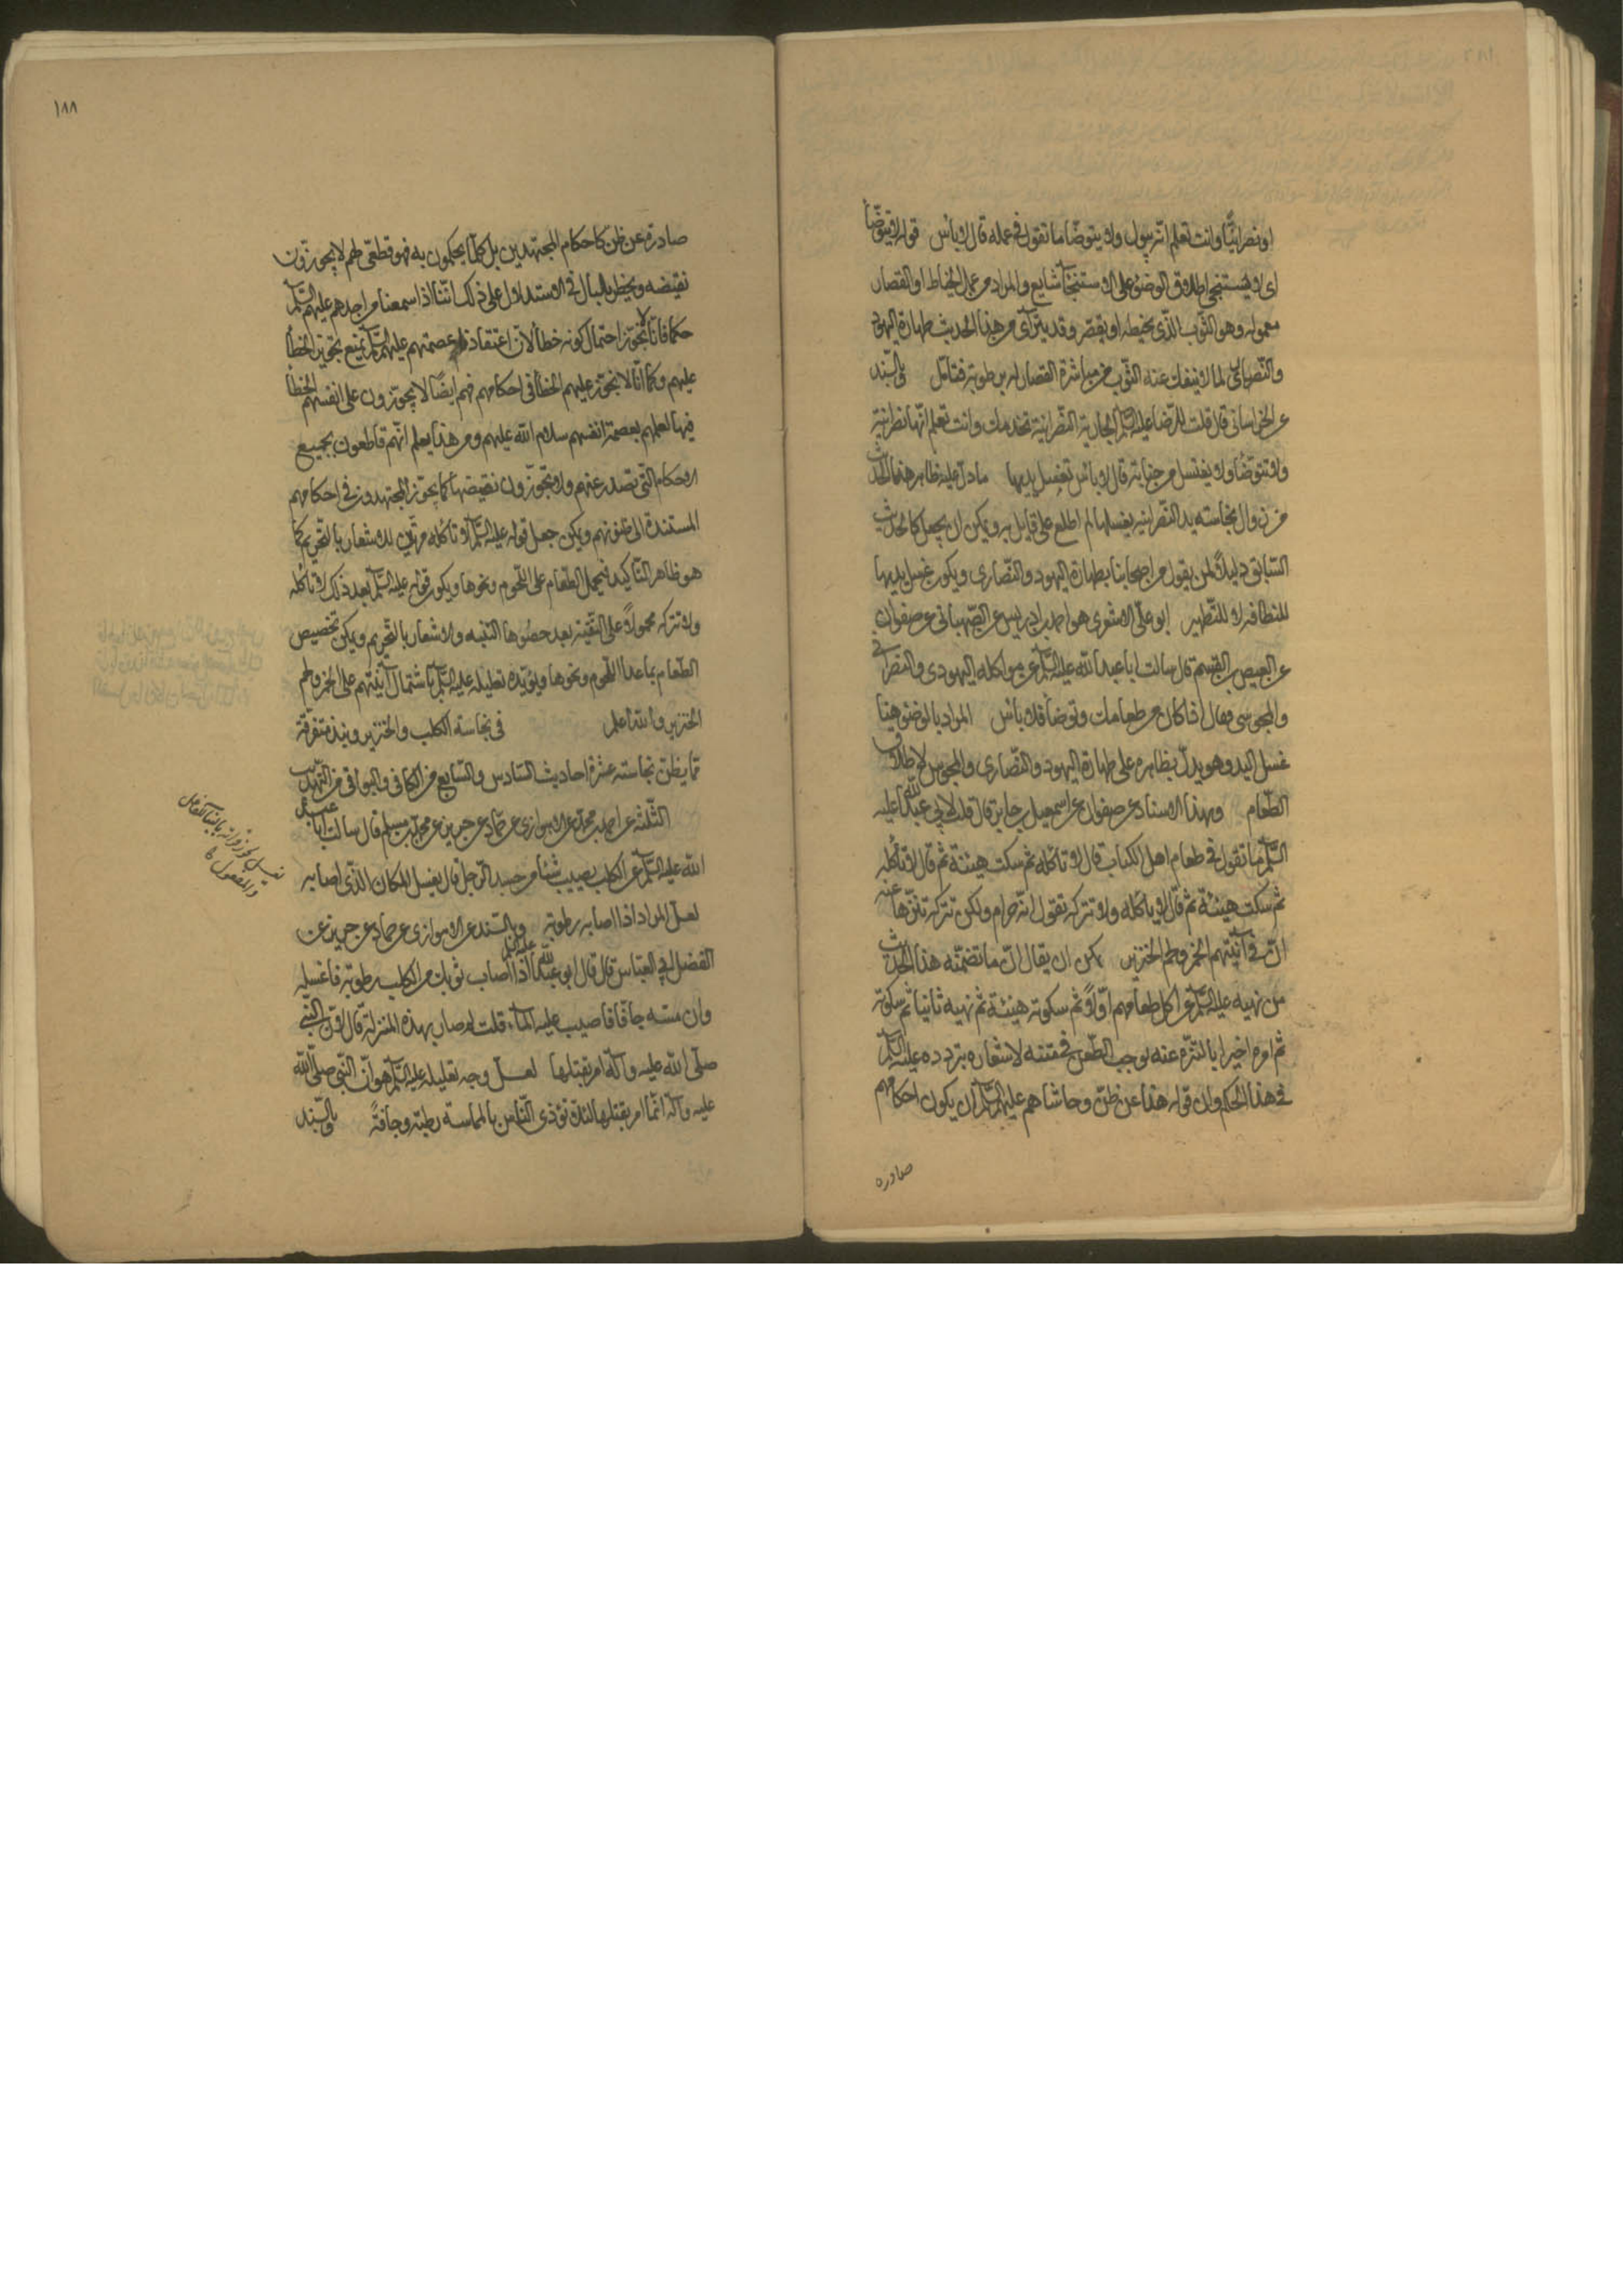 او نصرانيّا وانت تعلم انّه يبول ولا يتوضّأ ما تقول في عمله قال لا بأس قوله لا يتوضّأ
اى لا يستنجى اطلاق الوضوء على الاستنجاء شايع والمراد من عمل الخيّاط او القصّار
معموله وهو الثّوب الذّى يخيطه او يقصره وقد يترآى من هذا الحديث طهارة اليهود
والنّصارى لما لا ينفك عنه الثّوب من مباشرة القصّار له برطوبة فتامّل وبالسّند
عن الخراسانى قال قلت للرّضا عليه السّلم الجارية النّصرانيّة تخدمك وانت تعلم انّها نصرانيّة
ولا تتوضّأ ولا يغتسل من جنابة قال لا بأس تغسل يديها ما دلّ عليه ظاهر هذا الحديث
من زوال نجاسة يد النّصرانية بغسلها لم اطلع على قايل به ويمكن ان يجعل كالحديث
السّابق دليلاً لمن يقول من اصحابنا بطهارة اليهود والنّصارى ويكون غسل يديها
للنظافة لا للتّطهير ابو علّى الاشعرى هو احمد بن ادريس عن الصّهبانى عن صفوان
عن العيص بن القسم قال سالت ابا عبد الله عليه السّلم عن مواكلة اليهودى والنصرانى
والمجوسى فقال اذا كان من طعامك وتوضأ فلا بأس المراد بالوضوء هنا
غسل اليد وهو يدلّ بظاهره على طهارة اليهود والنّصارى والمجوس لاطلاق
الطّعام وبهذا الاسناد عن صفوان عن اسمعيل بن جابر قال قلت لابى عبد الله عليه
السّلم ما تقول في طعام اهل الكتاب فقال لا تاكله ثم سكت هنيئة ثم قال لا تأكله
ثم سكت هنيئة ثم قال لا تأكله ولا تتركه تقول انّه حرام ولكن تتركه تنزّها عنه
انّ فى آنيتهم الخمر ولحم الخنزير يمكن ان يقال انّ ما تضمّنه هذا الحديث
من نهيه عليه السّلم عن اكل طعامهم اوّلاً ثم سكوته هنيئة ثم نهيه ثانيا ثم سكوته
ثم امره اخيرا بالتنزّه عنه يوجب الطّعن فى متنه لاشعاره بتردده عليه السّلم
في هذا الحكم وان قوله هذا عن ظنّ وحاشاهم عليهم السّلم ان يكون احكامهم
صادرة
١٨٨
صادرة عن ظن كاحكام المجتهدين بل كلّما يحكمون به فهو قطعّى لهم لا يجوزون
نقيضه ويخطر بالبال فى الاستدلال على ذلك انّنا اذا سمعنا من احدهم عليهم السّلم
حكما فانّا لا نجوّز احتمال كونه خطأ لانّ اعتقادنا عصمتهم عليهم السّلم يمنع تجويز الخطأ
عليهم وكما انّا لا نجوّز عليهم الخطأ فى احكامهم فهم ايضًا لا يجوّزون على انفسهم الخطأ
فيها لعلمهم بعصمة انفسهم سلام الله عليهم ومن هذا يعلم انّهم قاطعون بجميع
الاحكام التّى تصدر عنهم ولا يجوّزون نقيضها كما يجوّز المجتهدون فى احكامهم
المستندة الى ظنونهم ويمكن جعل قوله عليه السّلم لا تاكله مرتين للاشعار بالتّحريم كما
هو ظاهر التّاكيد فيحمل الطّعام على اللّحوم ونحوها ويكون قوله عليه السّلم بعد ذلك لا تاكله
ولا تتركه محمولاً على التّقيّة بعد حصول التنبيه والاشعار بالتّحريم ويمكن تخصيص
الطّعام بما عدا اللّحوم ونحوها ويؤيّده تعليله عليه السّلم باشتمال آنيتهم على الخمر ولحم
الخنزير والله اعلم في نجاسة الكلب والخنزير ونبذ متفرقة
ممّا يظنّ نجاسته عشرة احاديث السّادس والسّابع من الكافى والبواقى من التّهذيب
الثّلثة عن احمد بن محمّد عن الاهوازى عن حمّاد عن حريز عن محمّد بن مسلم قال سالت ابا عبد
الله عليه السّلم عن الكلب يصيب شيئا من جسد الرّجل قال يغسل المكان الذّى اصابه
لعلّ المراد اذا اصابه برطوبة وبالسّند عن الاهوازى عن حمّاد عن حريز عن
الفضل ابى العبّاس قال قال ابو عبد الله عليه السّلم اذا اصاب ثوبك من الكلب رطوبة فاغسله
وان مسّه جافّا فاصبب عليه المآء قلت لم صار بهذه المنزلة قال لانّ النّبى
صلّى الله عليه وآله امر بقتلها لعلّ وجه تعليله عليه السّلم هو انّ النّبى صلّى الله
عليه وآله انّما امر بقتلها لئلا تؤذى النّاس بالمماسة رطبة وجافّة وبالسّند
يغسل يجوز قرائته بالبنآء للفاعل
والمفعول